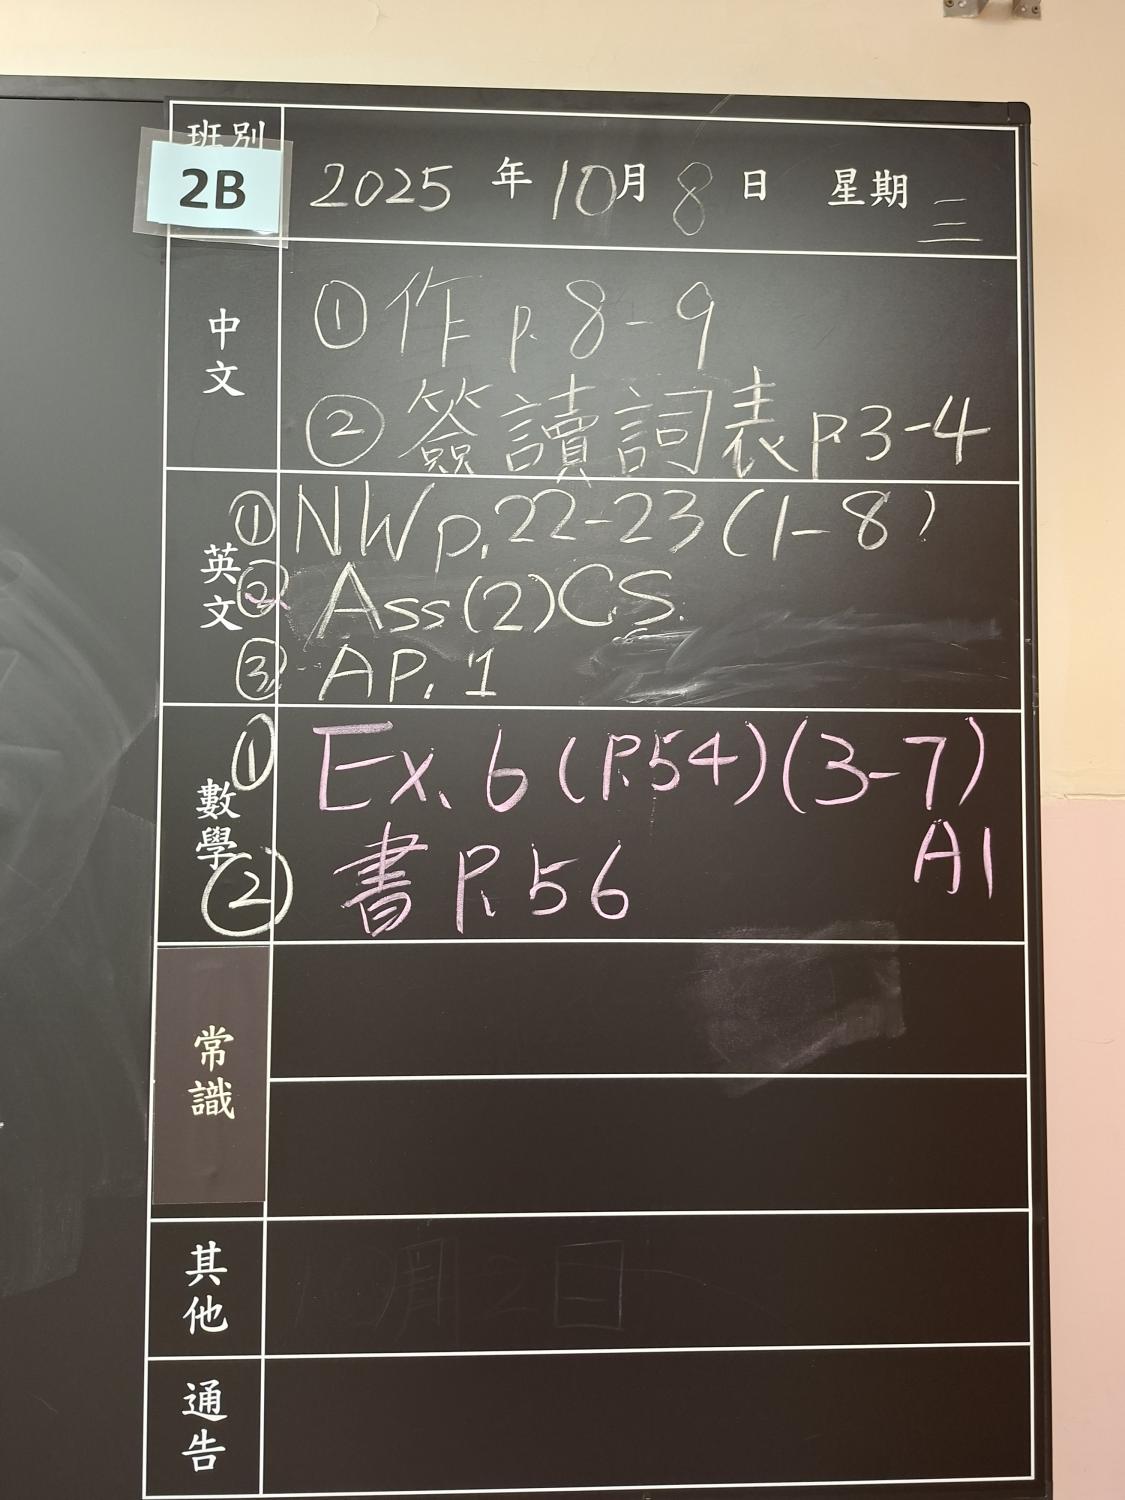 班別
2B
2025年10月8日 星期三
中文
①作p.8-9
②簽讀詞表p3-4
英文
①NW p.22-23(1-8)
②Ass(2)CS.
③AP.1
數學
①Ex.6(P.54)(3-7)
A1
②書P.56
常識
其他
10月2日
通告